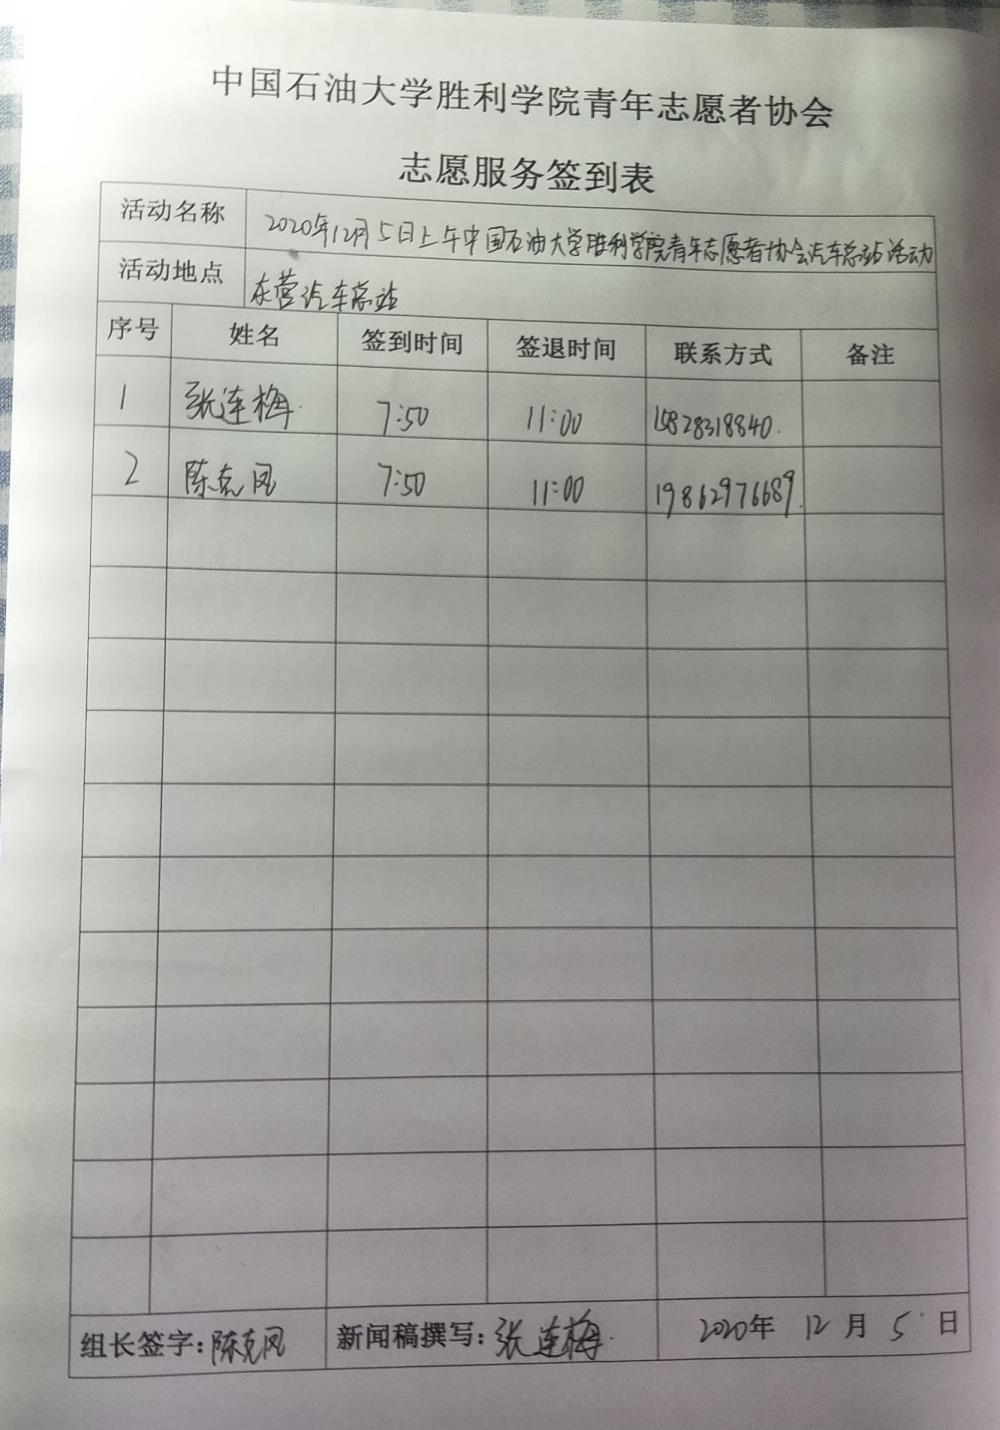 中国石油大学胜利学院青年志愿者协会
志愿服务签到表
活动名称 2020年12月5日上午中国石油大学胜利学院青年志愿者协会汽车总站活动
活动地点 东营汽车总站
序号 姓名 签到时间 签退时间 联系方式 备注
1 张连梅 7:50 11:00 15828318840
2 陈克风 7:50 11:00 19862976689
组长签字:陈克风 新闻稿撰写:张连梅 2020年 12 月 5 日